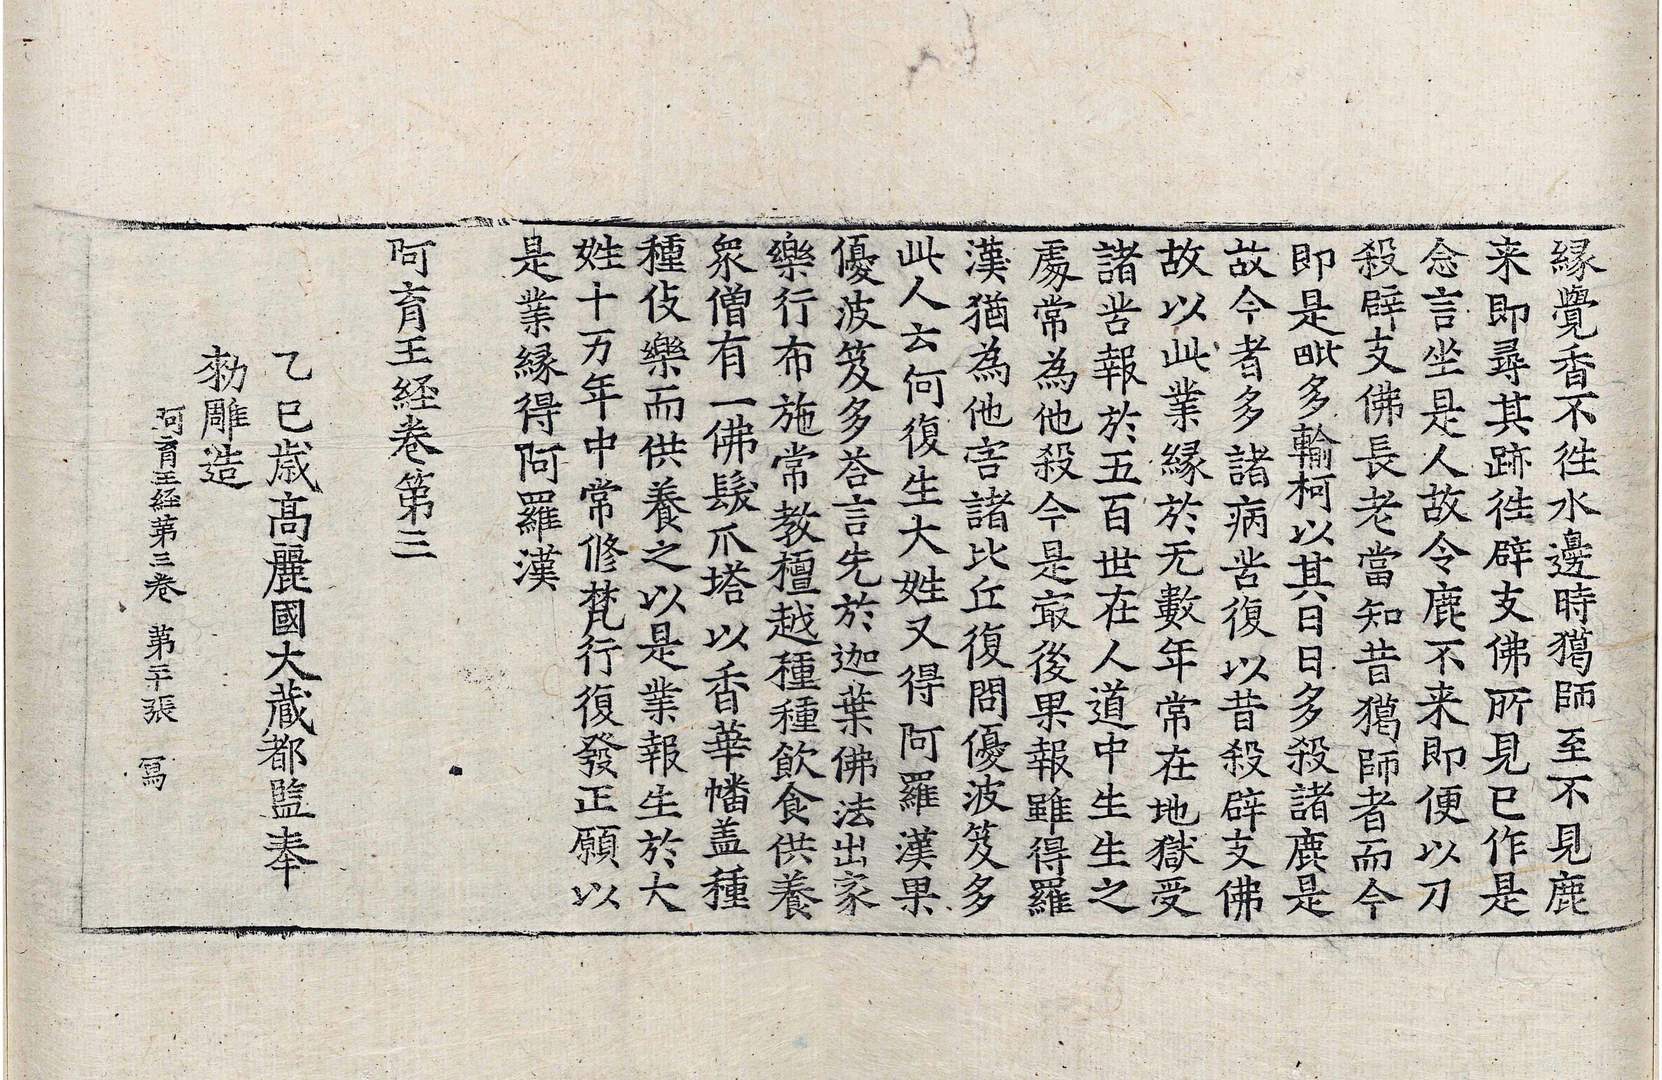 縁覺香不徃水邊時獦師至不見鹿
来即尋其跡徃辟支佛所見已作是
念言坐是人故令鹿不来即便以刀
殺辟支佛長老當知昔獦師者而今
即是毗多輸柯以其日日多殺諸鹿是
故今者多諸病苦復以昔殺辟支佛
故以此業縁於无數年常在地獄受
諸苦報於五百世在人道中生生之
處常為他殺今是㝡後果報雖得羅
漢猶為他害諸比丘復問優波笈多
此人云何復生大姓又得阿羅漢果
優波笈多荅言先於迦葉佛法出家
樂行布施常教檀越種種飲食供養
衆僧有一佛髮爪塔以香華幡盖種
種伎樂而供養之以是業報生於大
姓十万年中常修梵行復發正願以
是業縁得阿羅漢
阿育王経卷第三
乙巳歳高麗國大藏都監奉
勑雕造
阿育王経第三卷 第二十張 冩